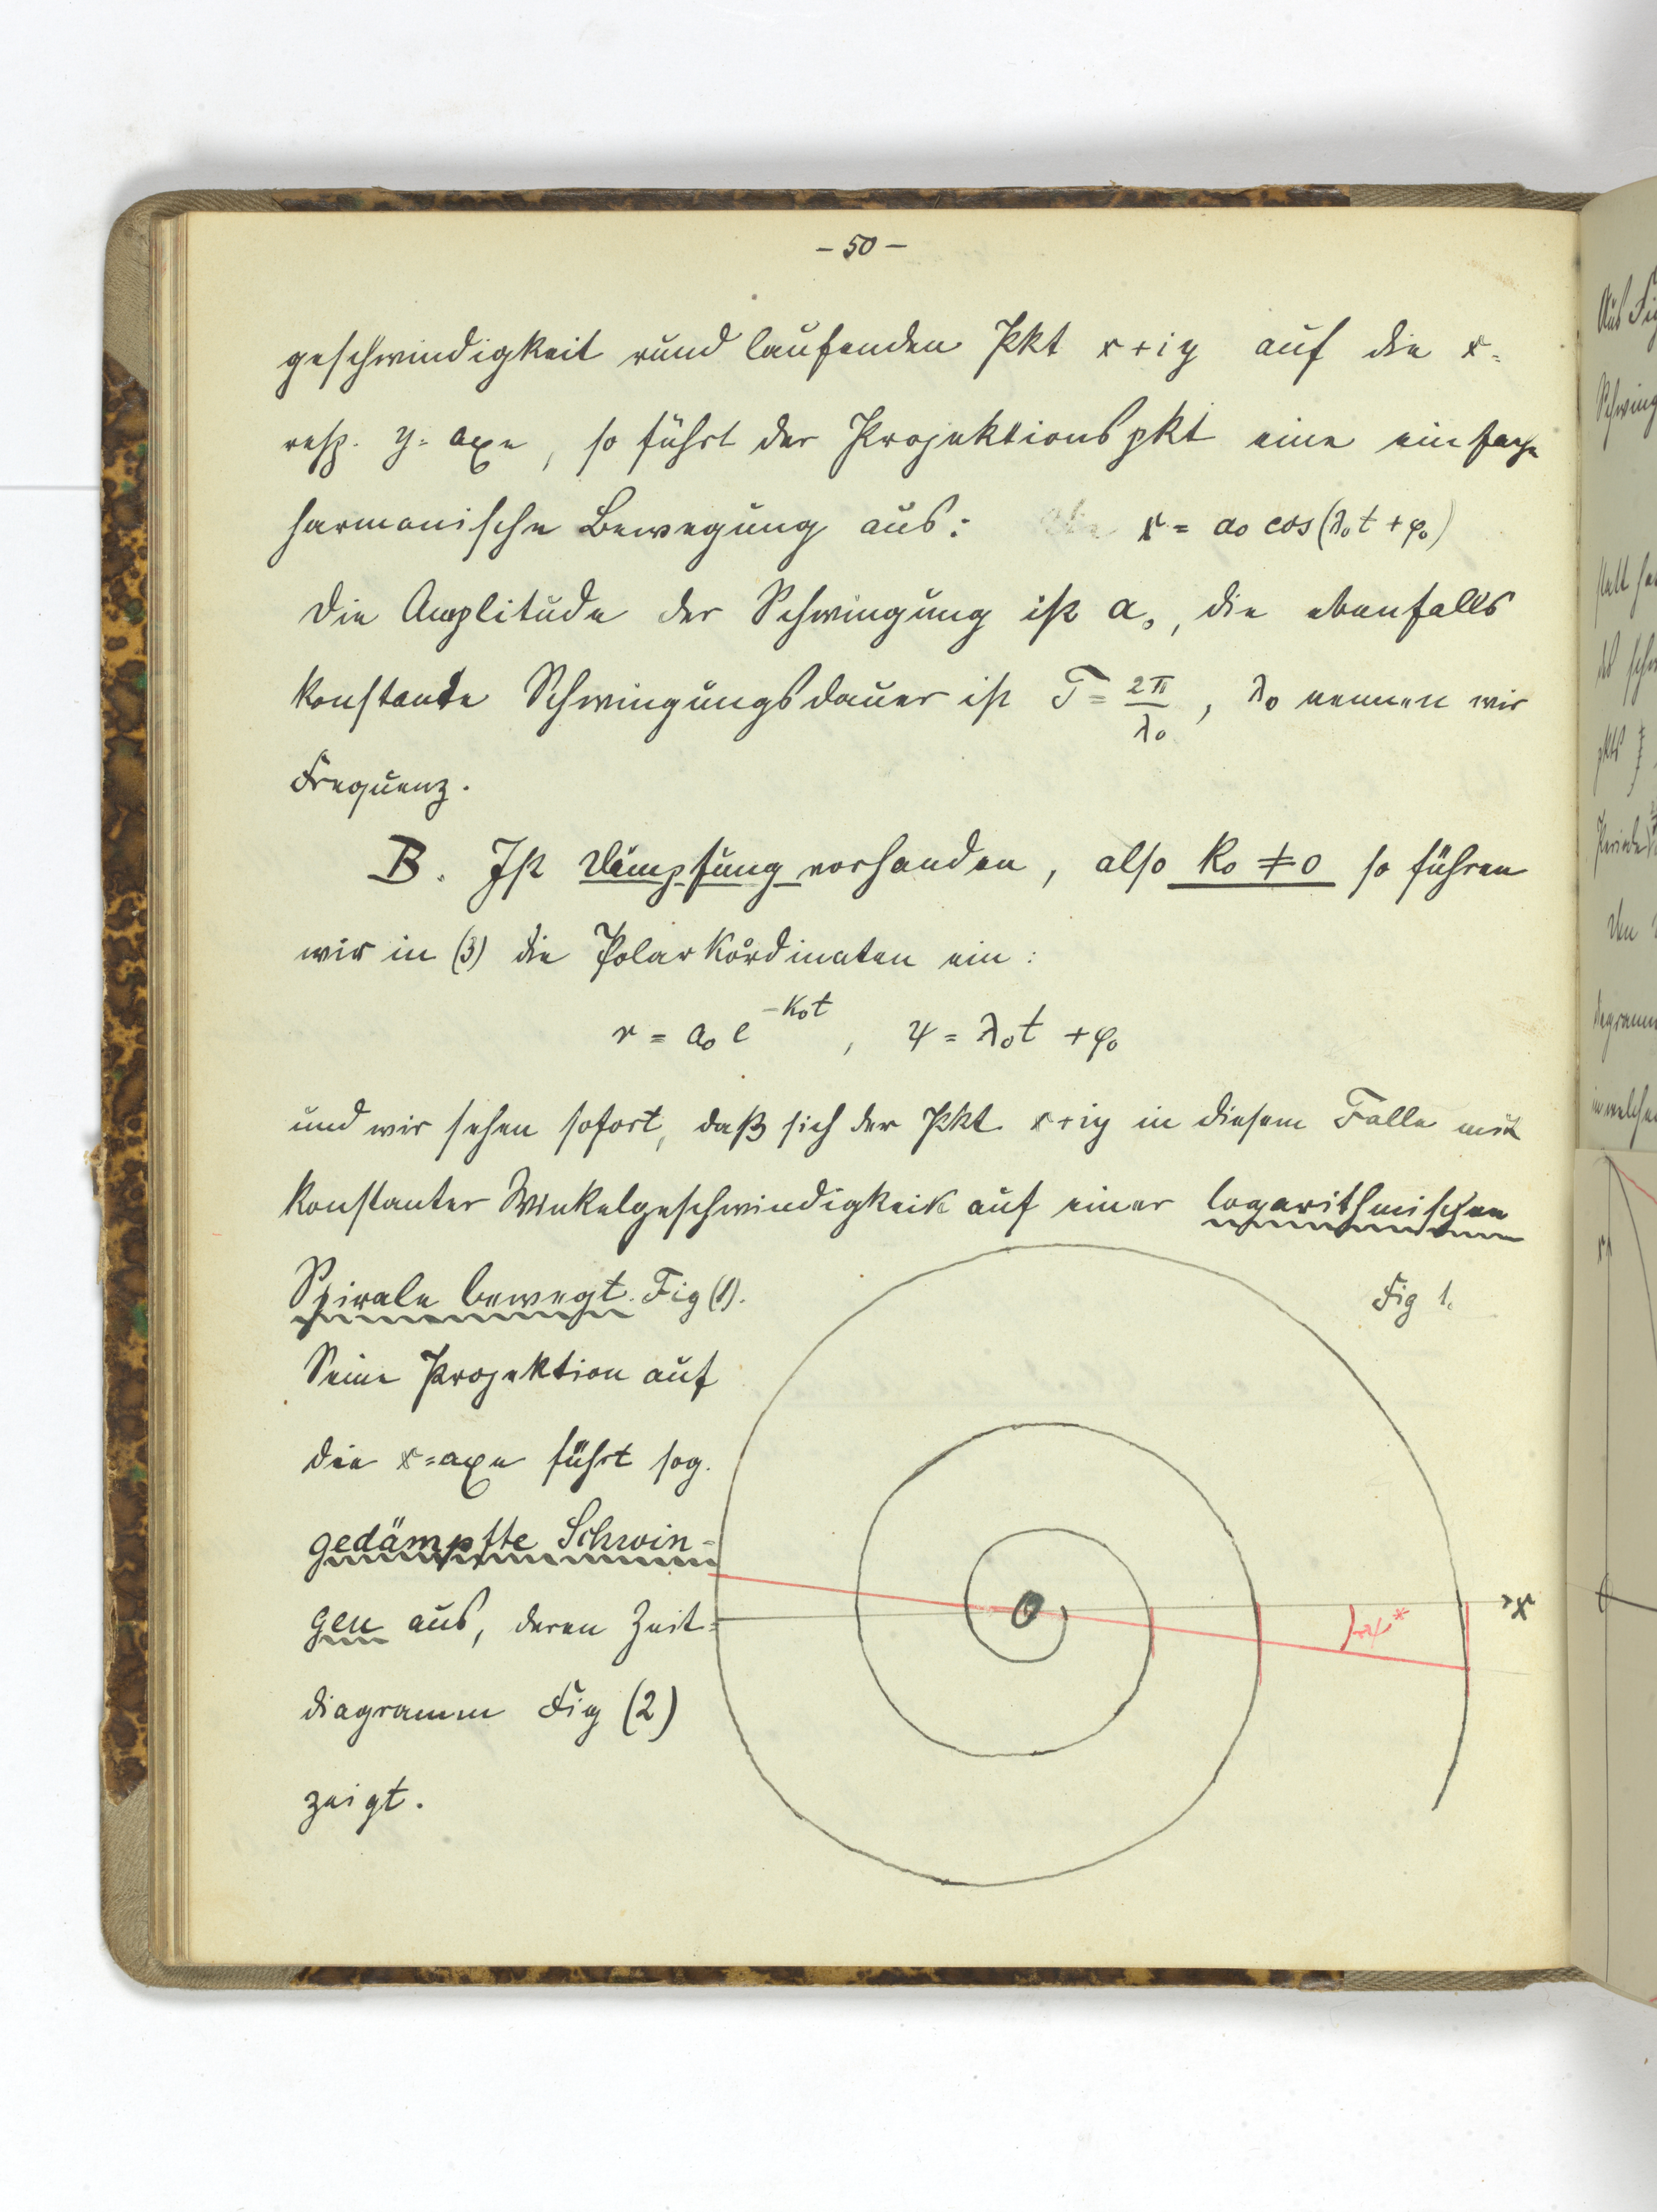 - 50 -
geschwindigkeit rund laufenden Pkt x+iy auf die x=
resp. y=axe, so führt der Projektionspkt eine einfache
harmonische Bewegung aus: x = a₀ cos(λ₀t + φ₀)
Die Amplitude der Schwingung ist a₀, die ebenfalls
konstante Schwingungsdauer ist T = 2π/λ₀, λ₀ nennen wir
Frequenz.
B. Ist Dämpfung vorhanden, also k₀ ≠ 0 so führen
wir in (3) die Polarkoordinaten ein:
r = a₀ e^{-k₀t}, ψ = λ₀t + φ₀
und wir sehen sofort, daß sich der Pkt x+iy in diesem Falle mit
konstanter Winkelgeschwindigkeit auf einer logarithmischen
Spirale bewegt. Fig (1).
Fig 1.
Seine Projektion auf
die x=axe führt sog.
gedämpfte Schwin-
gen aus, deren Zeit=
diagramm Fig (2)
zeigt.
O
x
ψ*
Aus Fi
Schwing